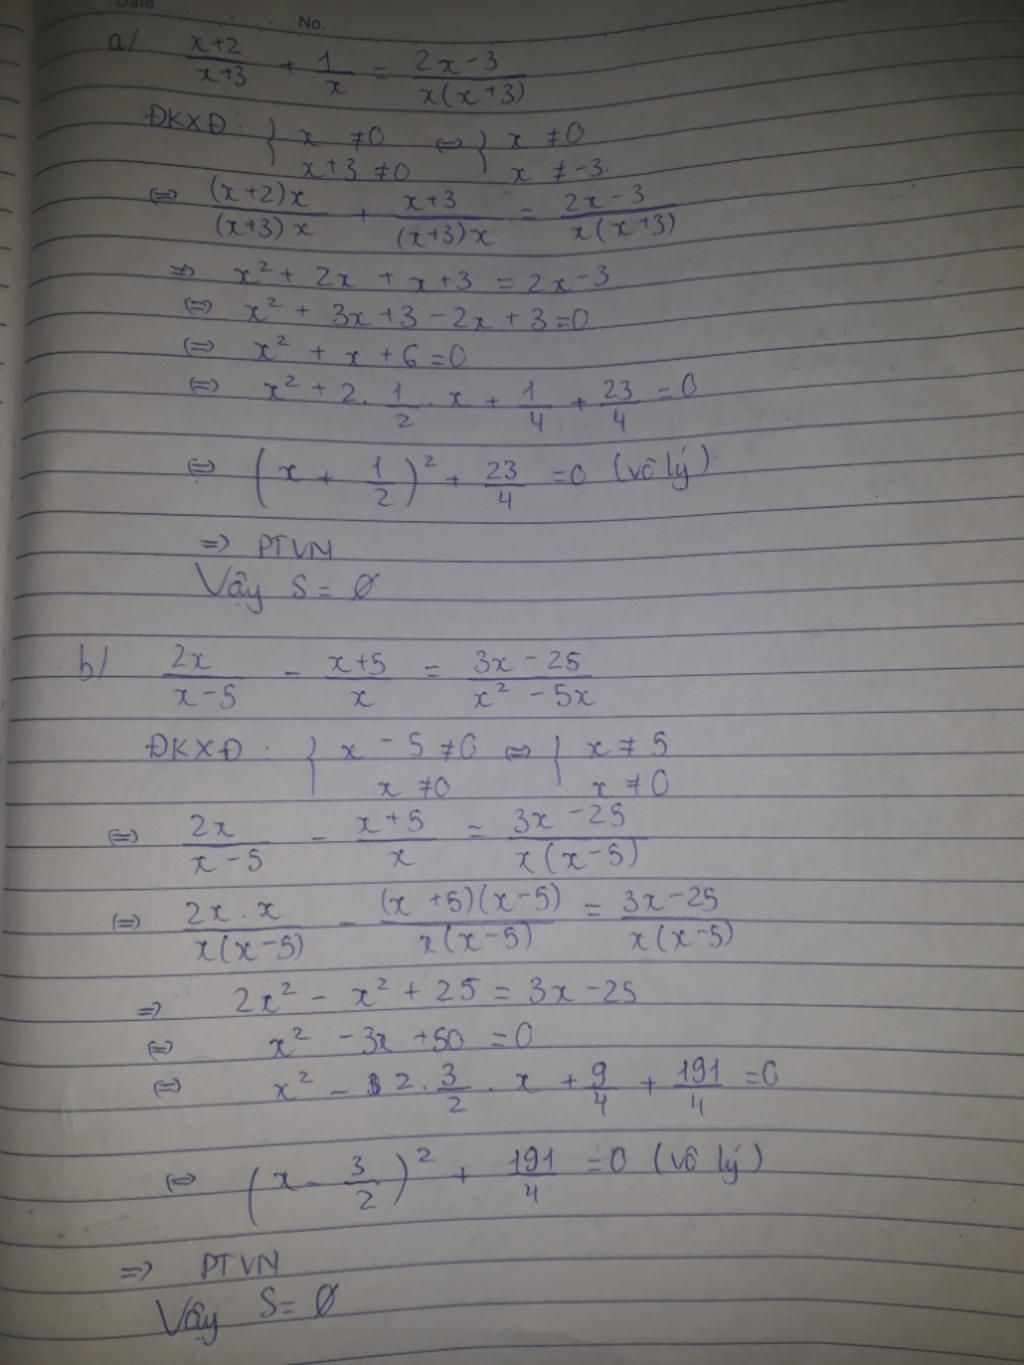 Date No.
a/ (x+2)/(x+3) + 1/x = (2x-3)/(x(x+3))
ĐKXĐ: { x ≠0 ⇔ { x ≠0
x+3 ≠0 x ≠ -3.
⇔ ((x+2)x)/((x+3)x) + (x+3)/((x+3)x) = (2x-3)/(x(x+3))
⇒ x² + 2x + x+3 = 2x-3
⇔ x² + 3x +3 - 2x + 3 =0
⇔ x² + x + 6 =0
⇔ x² + 2. 1/2 . x + 1/4 + 23/4 = 0
⇔ (x + 1/2)² + 23/4 =0 (vô lý)
⇒ PTVN
Vậy S = Ø
b/ 2x/(x-5) - (x+5)/x = (3x-25)/(x²-5x)
ĐKXĐ: { x - 5 ≠0 ⇔ { x ≠ 5
x ≠0 x ≠ 0
⇔ 2x/(x-5) - (x+5)/x = (3x-25)/(x(x-5))
⇔ (2x.x)/(x(x-5)) - ((x+5)(x-5))/(x(x-5)) = (3x-25)/(x(x-5))
⇒ 2x² - x² + 25 = 3x-25
⇔ x² - 3x +50 =0
⇔ x² - 2. 3/2 . x + 9/4 + 191/4 =0
⇔ (x - 3/2)² + 191/4 =0 (vô lý)
⇒ PTVN
Vậy S= Ø